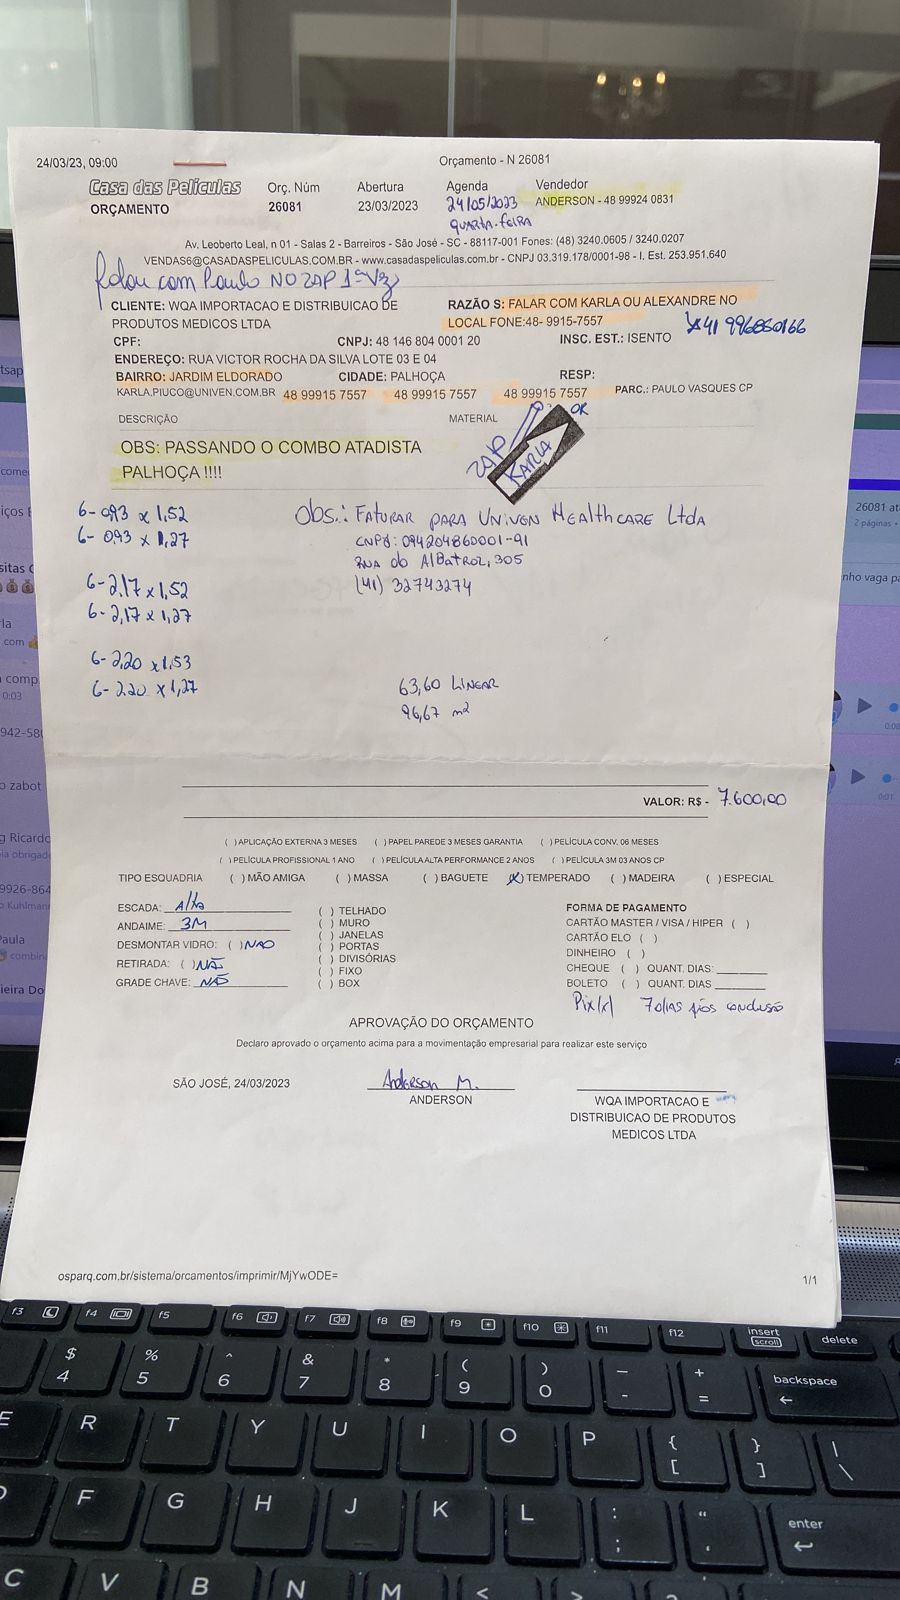 24/03/23, 09:00
Orçamento - N 26081
Casa das Películas
ORÇAMENTO
Orç. Núm
26081
Abertura
23/03/2023
Agenda
24/05/2023
QUARTA-FEIRA
Vendedor
ANDERSON - 48 99924 0831
Av. Leoberto Leal, n 01 - Salas 2 - Barreiros - São José - SC - 88117-001 Fones: (48) 3240.0605 / 3240.0207
VENDAS6@CASADASPELICULAS.COM.BR - www.casadaspeliculas.com.br - CNPJ 03.319.178/0001-98 - I. Est. 253.951.640
falou com Paulo NO ZAP 1ª Vez
CLIENTE: WQA IMPORTACAO E DISTRIBUICAO DE
PRODUTOS MEDICOS LTDA
RAZÃO S: FALAR COM KARLA OU ALEXANDRE NO
LOCAL FONE:48- 9915-7557
41 996850166
CPF:
CNPJ: 48 146 804 0001 20
INSC. EST.: ISENTO
ENDEREÇO: RUA VICTOR ROCHA DA SILVA LOTE 03 E 04
BAIRRO: JARDIM ELDORADO
CIDADE: PALHOÇA
RESP:
KARLA.PIUCO@UNIVEN.COM.BR
48 99915 7557
48 99915 7557
48 99915 7557
PARC.: PAULO VASQUES CP
OK
DESCRIÇÃO
MATERIAL
ZAP
KARLA
OBS: PASSANDO O COMBO ATADISTA
PALHOÇA !!!!
6- 0,93 x 1,52
6- 0,93 x 1,27
6- 2,17 x 1,52
6- 2,17 x 1,27
6- 2,20 x 1,53
6- 2.20 x 1,27
Obs.: FATURAR PARA UNIVEN HEALTHCARE Ltda
CNPJ: 094204860001-91
RUA do AlBATROZ, 305
(41) 32743274
63,60 LINEAR
96,67 m²
VALOR: R$ - 7.600,00
( ) APLICAÇÃO EXTERNA 3 MESES ( ) PAPEL PAREDE 3 MESES GARANTIA ( ) PELÍCULA CONV. 06 MESES
( ) PELÍCULA PROFISSIONAL 1 ANO ( ) PELÍCULA ALTA PERFORMANCE 2 ANOS ( ) PELÍCULA 3M 03 ANOS CP
TIPO ESQUADRIA ( ) MÃO AMIGA ( ) MASSA ( ) BAGUETE (X) TEMPERADO ( ) MADEIRA ( ) ESPECIAL
ESCADA: Alta
ANDAIME: 3M
DESMONTAR VIDRO: ( ) NÃO
RETIRADA: ( ) NÃO
GRADE CHAVE: NÃO
( ) TELHADO
( ) MURO
( ) JANELAS
( ) PORTAS
( ) DIVISÓRIAS
( ) FIXO
( ) BOX
FORMA DE PAGAMENTO
CARTÃO MASTER / VISA / HIPER ( )
CARTÃO ELO ( )
DINHEIRO ( )
CHEQUE ( ) QUANT. DIAS:
BOLETO ( ) QUANT. DIAS
Pix (x) 7 dias após conclusão
APROVAÇÃO DO ORÇAMENTO
Declaro aprovado o orçamento acima para a movimentação empresarial para realizar este serviço
SÃO JOSÉ, 24/03/2023
Anderson M.
ANDERSON
WQA IMPORTACAO E
DISTRIBUICAO DE PRODUTOS
MEDICOS LTDA
osparq.com.br/sistema/orcamentos/imprimir/MjYwODE=
1/1
26081
2 páginas
nho vaga p
0:03
0:01
f3 f4 f5 f6 f7 f8 f9 f10 f11 f12 insert scroll delete
$ 4 % 5 ^ 6 & 7 * 8 ( 9 ) 0 _ - + = backspace
E R T Y U I O P { [ } ] | \
D F G H J K L : ; " ' enter
C V B N M < >